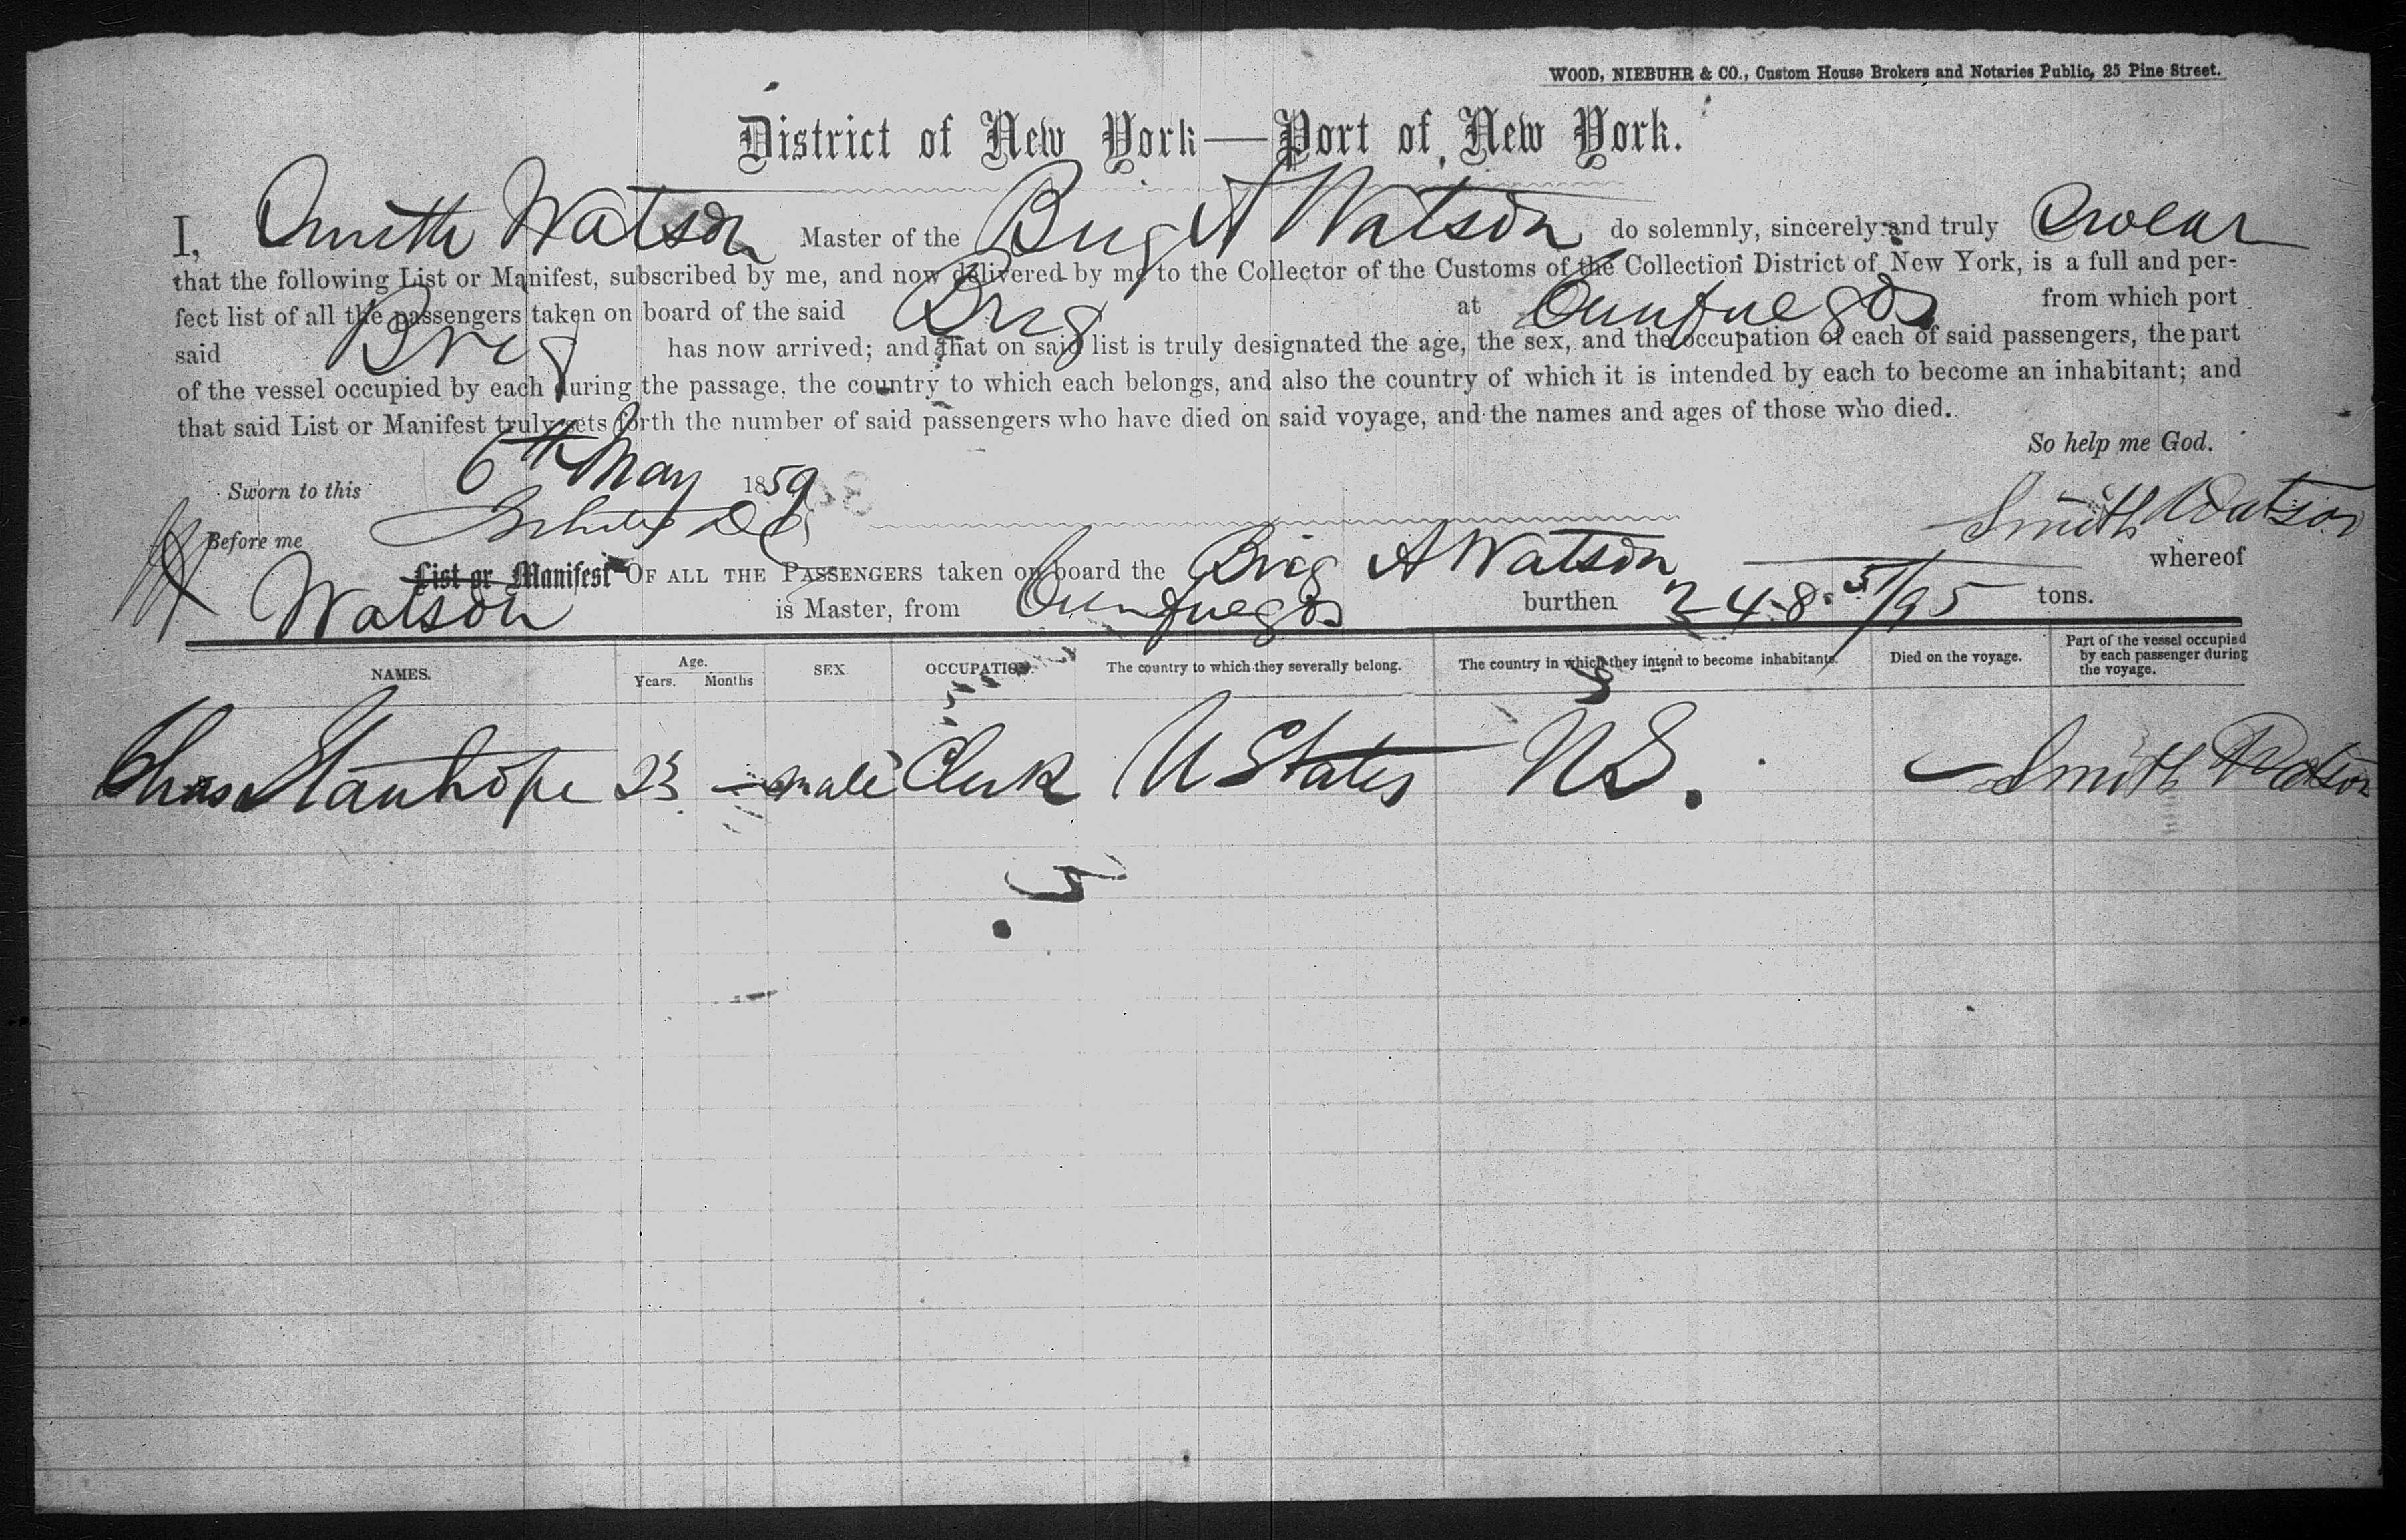 WOOD, NIEBUHR & CO., Custom House Brokers and Notaries Public, 25 Pine Street.
District of New York—Port of New York.
I, Smith Watson Master of the Brig A Watson do solemnly, sincerely and truly Swear
that the following List or Manifest, subscribed by me, and now delivered by me to the Collector of the Customs of the Collection District of New York, is a full and per-
fect list of all the passengers taken on board of the said Brig at Cienfuegos from which port
said Brig has now arrived; and that on said list is truly designated the age, the sex, and the occupation of each of said passengers, the part
of the vessel occupied by each during the passage, the country to which each belongs, and also the country of which it is intended by each to become an inhabitant; and
that said List or Manifest truly sets forth the number of said passengers who have died on said voyage, and the names and ages of those who died.
So help me God.
Sworn to this 6th May 1859
Smith Watson
Before me
List or Manifest OF ALL THE PASSENGERS taken on board the Brig A Watson whereof
Watson is Master, from Cienfuegos burthen 248. 51/95 tons.
NAMES. Age. Years. Months SEX OCCUPATION. The country to which they severally belong. The country in which they intend to become inhabitants. Died on the voyage. Part of the vessel occupied by each passenger during the voyage.
Chas Stanhope 23 — male Clerk U States U S. Smith Watson